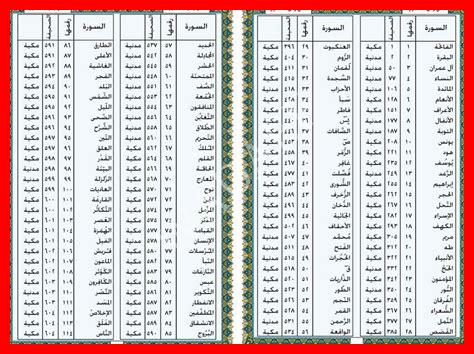 السورة رقمها الصحيفة
الفاتحة ١ ١ مكية
البقرة ٢ ٢ مدنية
آل عمران ٣ ٥٠ مدنية
النساء ٤ ٧٧ مدنية
المائدة ٥ ١٠٦ مدنية
الأنعام ٦ ١٢٨ مكية
الأعراف ٧ ١٥١ مكية
الأنفال ٨ ١٧٧ مدنية
التوبة ٩ ١٨٧ مدنية
يونس ١٠ ٢٠٨ مكية
هود ١١ ٢٢١ مكية
يوسف ١٢ ٢٣٥ مكية
الرعد ١٣ ٢٤٩ مدنية
إبراهيم ١٤ ٢٥٥ مكية
الحجر ١٥ ٢٦٢ مكية
النحل ١٦ ٢٦٧ مكية
الإسراء ١٧ ٢٨٢ مكية
الكهف ١٨ ٢٩٣ مكية
مريم ١٩ ٣٠٥ مكية
طه ٢٠ ٣١٢ مكية
الأنبياء ٢١ ٣٢٢ مكية
الحج ٢٢ ٣٣٢ مدنية
المؤمنون ٢٣ ٣٤٢ مكية
النور ٢٤ ٣٥٠ مدنية
الفرقان ٢٥ ٣٥٩ مكية
الشعراء ٢٦ ٣٦٧ مكية
النمل ٢٧ ٣٧٧ مكية
القصص ٢٨ ٣٨٥ مكية
السورة رقمها الصحيفة
العنكبوت ٢٩ ٣٩٦ مكية
الروم ٣٠ ٤٠٤ مكية
لقمان ٣١ ٤١١ مكية
السجدة ٣٢ ٤١٥ مكية
الأحزاب ٣٣ ٤١٨ مدنية
سبأ ٣٤ ٤٢٨ مكية
فاطر ٣٥ ٤٣٤ مكية
يس ٣٦ ٤٤٠ مكية
الصافات ٣٧ ٤٤٦ مكية
ص ٣٨ ٤٥٣ مكية
الزمر ٣٩ ٤٥٨ مكية
غافر ٤٠ ٤٦٧ مكية
فصلت ٤١ ٤٧٧ مكية
الشورى ٤٢ ٤٨٣ مكية
الزخرف ٤٣ ٤٨٩ مكية
الدخان ٤٤ ٤٩٦ مكية
الجاثية ٤٥ ٤٩٩ مكية
الأحقاف ٤٦ ٥٠٢ مكية
محمد ٤٧ ٥٠٧ مدنية
الفتح ٤٨ ٥١١ مدنية
الحجرات ٤٩ ٥١٥ مدنية
ق ٥٠ ٥١٨ مكية
الذاريات ٥١ ٥٢٠ مكية
الطور ٥٢ ٥٢٣ مكية
النجم ٥٣ ٥٢٦ مكية
القمر ٥٤ ٥٢٨ مكية
الرحمن ٥٥ ٥٣١ مدنية
الواقعة ٥٦ ٥٣٤ مكية
السورة رقمها الصحيفة
الحديد ٥٧ ٥٣٧ مدنية
المجادلة ٥٨ ٥٤٢ مدنية
الحشر ٥٩ ٥٤٥ مدنية
الممتحنة ٦٠ ٥٤٩ مدنية
الصف ٦١ ٥٥١ مدنية
الجمعة ٦٢ ٥٥٣ مدنية
المنافقون ٦٣ ٥٥٤ مدنية
التغابن ٦٤ ٥٥٦ مدنية
الطلاق ٦٥ ٥٥٨ مدنية
التحريم ٦٦ ٥٦٠ مدنية
الملك ٦٧ ٥٦٢ مكية
القلم ٦٨ ٥٦٤ مكية
الحاقة ٦٩ ٥٦٦ مكية
المعارج ٧٠ ٥٦٨ مكية
نوح ٧١ ٥٧٠ مكية
الجن ٧٢ ٥٧٢ مكية
المزمل ٧٣ ٥٧٤ مكية
المدثر ٧٤ ٥٧٥ مكية
القيامة ٧٥ ٥٧٧ مكية
الإنسان ٧٦ ٥٧٨ مدنية
المرسلات ٧٧ ٥٨٠ مكية
النبأ ٧٨ ٥٨٢ مكية
النازعات ٧٩ ٥٨٣ مكية
عبس ٨٠ ٥٨٥ مكية
التكوير ٨١ ٥٨٦ مكية
الانفطار ٨٢ ٥٨٧ مكية
المطففين ٨٣ ٥٨٧ مكية
الانشقاق ٨٤ ٥٨٩ مكية
البروج ٨٥ ٥٩٠ مكية
السورة رقمها الصحيفة
الطارق ٨٦ ٥٩١ مكية
الأعلى ٨٧ ٥٩١ مكية
الغاشية ٨٨ ٥٩٢ مكية
الفجر ٨٩ ٥٩٣ مكية
البلد ٩٠ ٥٩٤ مكية
الشمس ٩١ ٥٩٥ مكية
الليل ٩٢ ٥٩٥ مكية
الضحى ٩٣ ٥٩٦ مكية
الشرح ٩٤ ٥٩٦ مكية
التين ٩٥ ٥٩٧ مكية
العلق ٩٦ ٥٩٧ مكية
القدر ٩٧ ٥٩٨ مكية
البينة ٩٨ ٥٩٨ مدنية
الزلزلة ٩٩ ٥٩٩ مدنية
العاديات ١٠٠ ٥٩٩ مكية
القارعة ١٠١ ٦٠٠ مكية
التكاثر ١٠٢ ٦٠٠ مكية
العصر ١٠٣ ٦٠١ مكية
الهمزة ١٠٤ ٦٠١ مكية
الفيل ١٠٥ ٦٠١ مكية
قريش ١٠٦ ٦٠٢ مكية
الماعون ١٠٧ ٦٠٢ مكية
الكوثر ١٠٨ ٦٠٢ مكية
الكافرون ١٠٩ ٦٠٣ مكية
النصر ١١٠ ٦٠٣ مدنية
المسد ١١١ ٦٠٣ مكية
الإخلاص ١١٢ ٦٠٤ مكية
الفلق ١١٣ ٦٠٤ مكية
الناس ١١٤ ٦٠٤ مكية